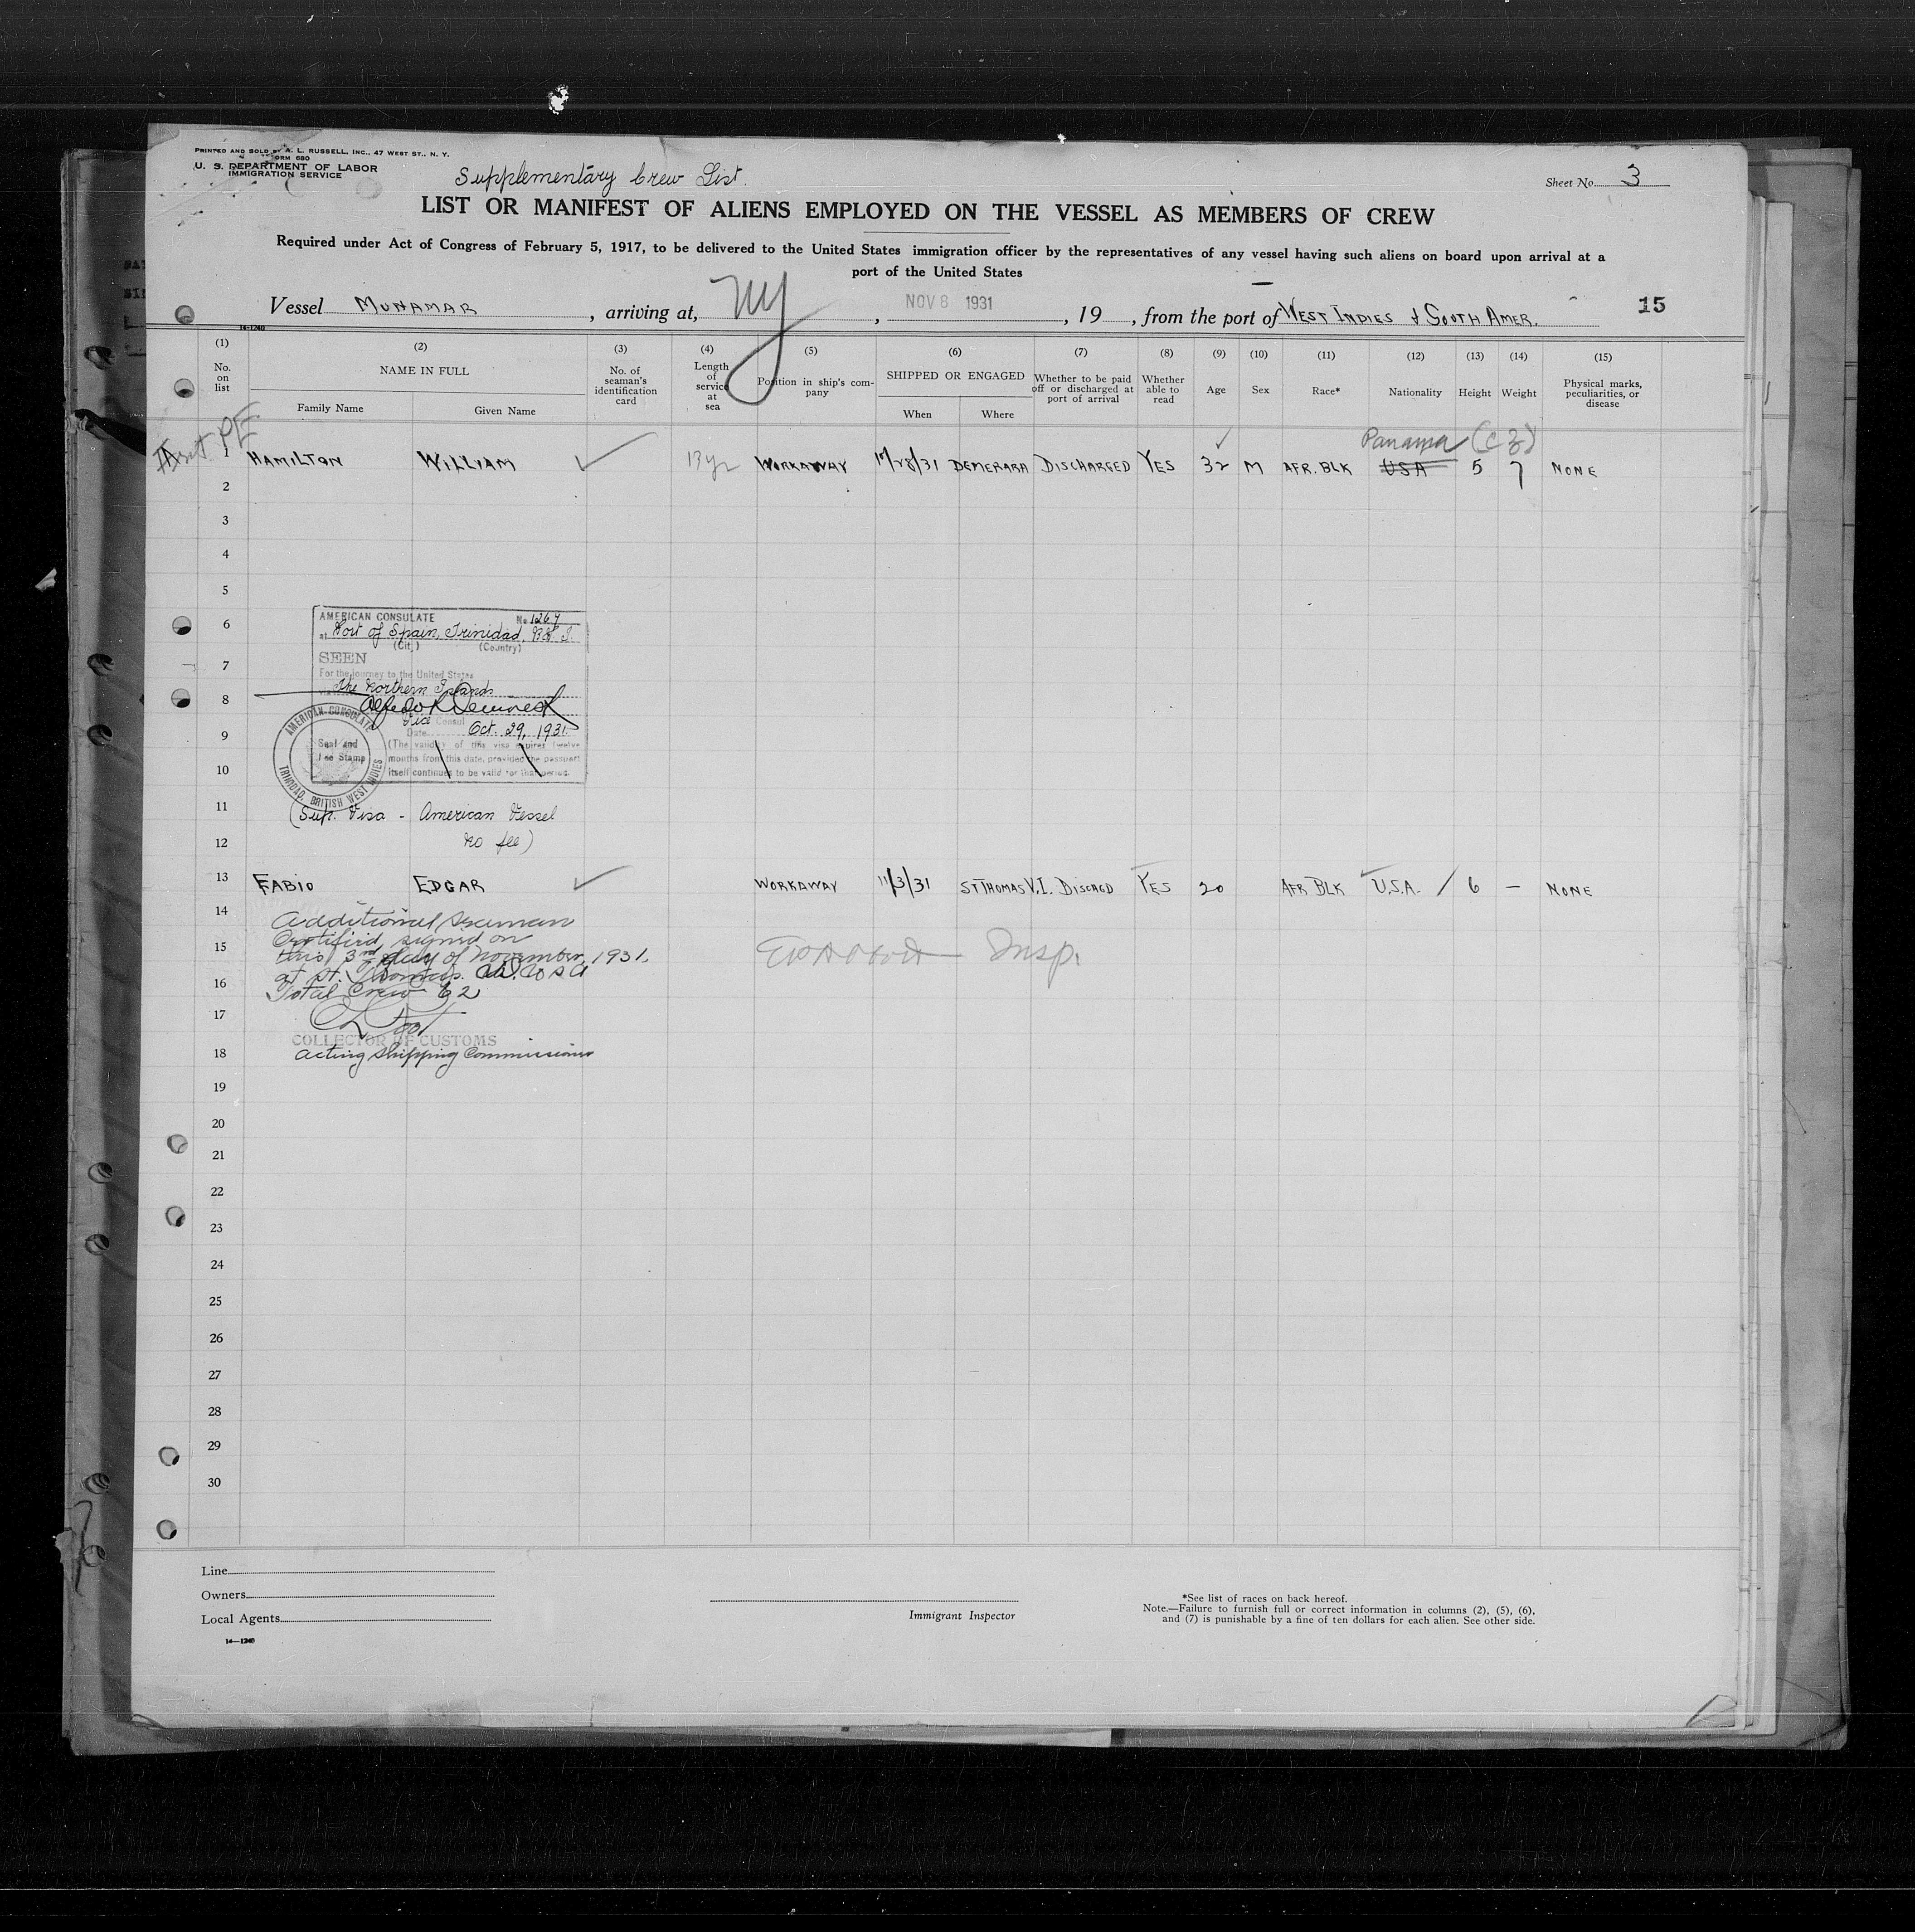 PRINTED AND SOLD BY A. L. RUSSELL, INC., 47 WEST ST., N. Y.
FORM 680
U. S. DEPARTMENT OF LABOR
IMMIGRATION SERVICE
Supplementary Crew List.
Sheet No. 3
LIST OR MANIFEST OF ALIENS EMPLOYED ON THE VESSEL AS MEMBERS OF CREW
Required under Act of Congress of February 5, 1917, to be delivered to the United States immigration officer by the representatives of any vessel having such aliens on board upon arrival at a
port of the United States
Vessel MUNAMAR, arriving at, NY, NOV 8 1931, 19, from the port of WEST INDIES & SOUTH AMER. 15
14-1240
(1) (2) (3) (4) (5) (6) (7) (8) (9) (10) (11) (12) (13) (14) (15)
No. on list
NAME IN FULL
Family Name Given Name
No. of seaman's identification card
Length of service at sea
Position in ship's company
SHIPPED OR ENGAGED
When Where
Whether to be paid off or discharged at port of arrival
Whether able to read
Age
Sex
Race*
Nationality
Height
Weight
Physical marks, peculiarities, or disease
Panama (CZ)
1 HAMILTON WILLIAM 13 yr WORKAWAY DEMERARA DISCHARGED YES 32 M AFR. BLK USA 5 7 NONE
2
3
4
5
AMERICAN CONSULATE No 1267
6
at Port of Spain, Trinidad, B.W.I.
(City) (Country)
SEEN
7
For the journey to the United States
The Northern Islands
8
Vice Consul
Date Oct. 29, 1931.
9
(The validity of this visa expires twelve
months from this date, provided the passport
itself continues to be valid for that period.
10
AMERICAN CONSULATE
Seal and
Fee Stamp
TRINIDAD, BRITISH WEST INDIES
11
(Sup. Visa - American Vessel
12
No fee)
13 FABIO EDGAR WORKAWAY 11/3/31 ST THOMAS V.I. DISCHGD YES 20 AFR BLK U.S.A. / 6 — NONE
14
Additional Seaman
Certified, signed on
15
this 3rd day of November, 1931,
at St. Thomas.
16
Total Crew 62
Insp.
17
COLLECTOR OF CUSTOMS
18
Acting Shipping Commissioner
19
20
21
22
23
24
25
26
27
28
29
30
Line
Owners
Local Agents
14-1240
Immigrant Inspector
*See list of races on back hereof.
Note.—Failure to furnish full or correct information in columns (2), (5), (6),
and (7) is punishable by a fine of ten dollars for each alien. See other side.